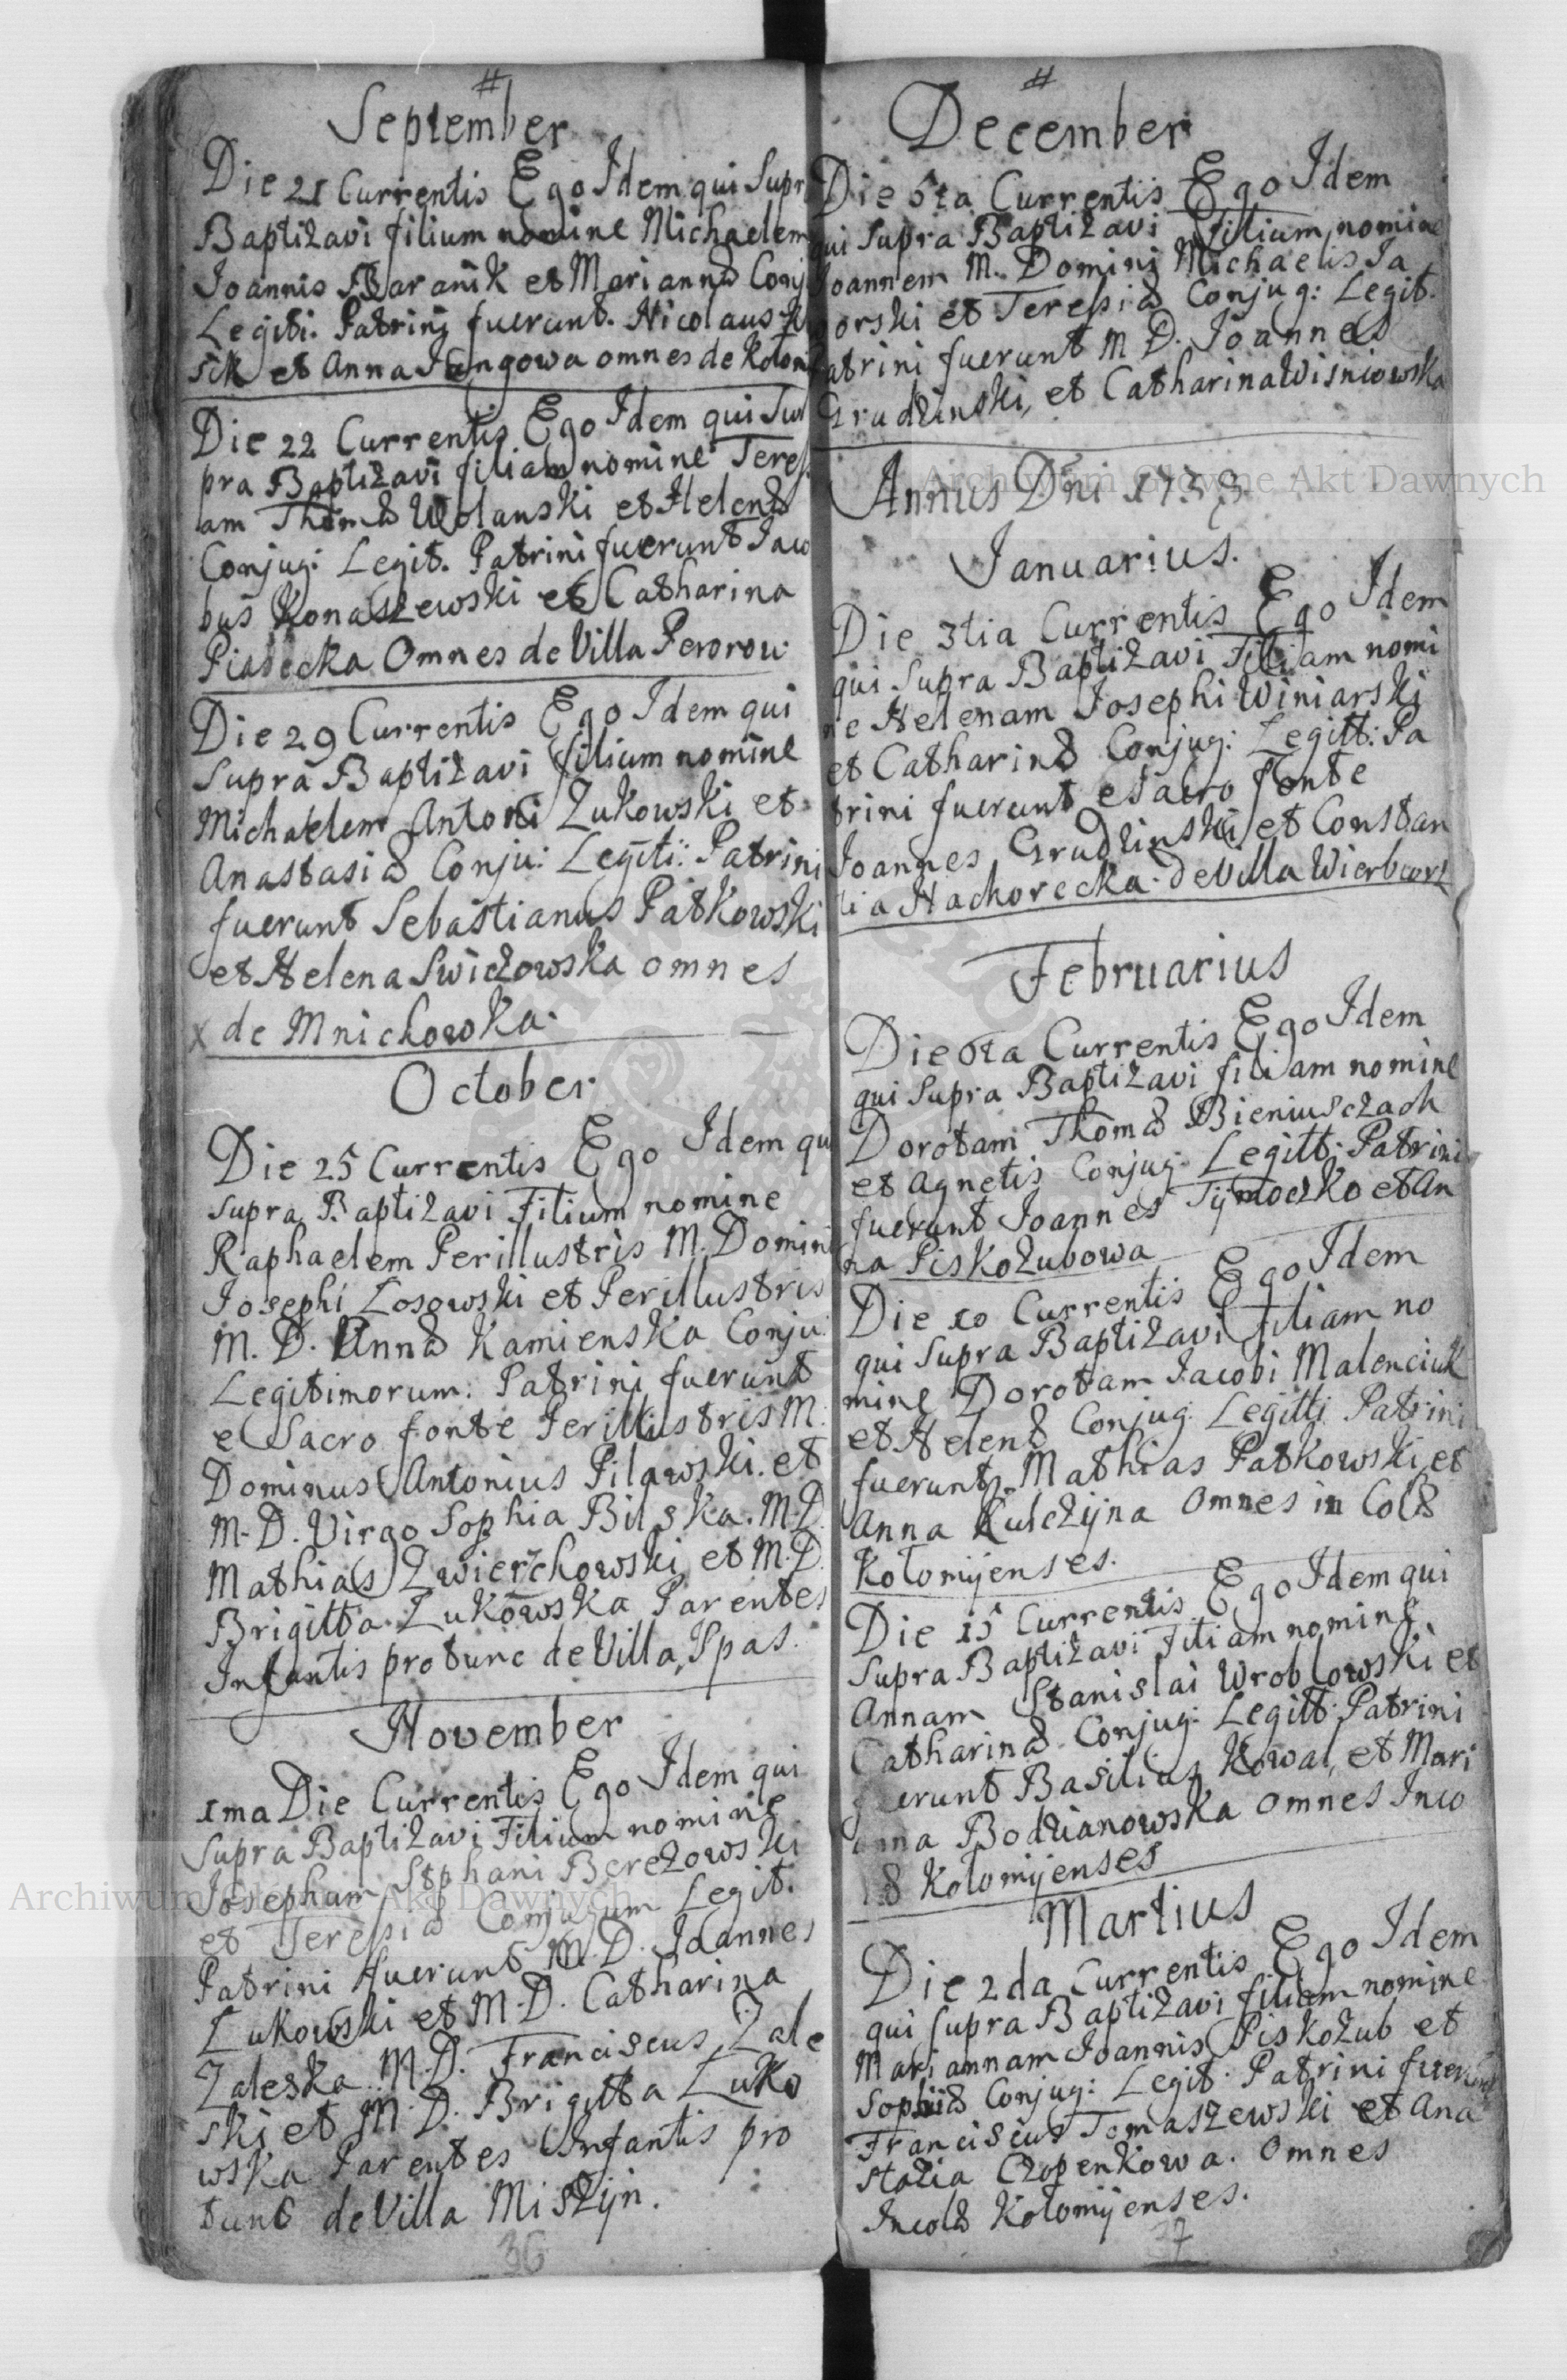 #
September
Die 21 Currentis Ego Idem qui Supr
Baptizavi filium nomine Michaelem
Joannis Baranik et Mariannæ Conj
Legiti. Patrinij fuerunt. Nicolaus
sik et Anna omnes de Kolom
Die 22 Currentis Ego Idem qui Su
pra Baptizavi filiam nomine Teres
am Thomæ Wolanski et Helenæ
Conjug: Legit. Patrini fuerunt Jaco
bus Konaszewski et Catharina
Piasecka Omnes de Villa Perorow.
Die 29 Currentis Ego Idem qui
Supra Baptizavi filium nomine
Michaelem Antoni Zukowski et
Anastasiæ Conju: Legiti: Patrini
fuerunt Sebastianus Patkowski
et Helena Swiczowska omnes
x de Mnichowka.
October
Die 25 Currentis Ego Idem qu
supra Baptizavi Filium nomine
Raphaelem Perillustris M. Domini
Josephi Losowski et Perillustris
M. D. Annæ Kamienska Conju:
Legitimorum: Patrini fuerunt
e Sacro fonte Perillustris M:
Dominus Antonius Pilawski. et
M. D. Virgo Sophia Bilska. M. D.
Mathias Zwierzchowski et M. D.
Brigitta Zukowska Parentes
Infantis protunc de Villa Spas.
November
1ma Die Currentis Ego Idem qui
Supra Baptizavi Filium nomine
Josephum Stphani Berezowski
et Teresiæ Conjugum Legit.
Patrini fuerunt M. D. Joannes
Zukowski et M. D. Catharina
Zaleska M. D. Franciscus Zale
ski et M. D. Brigitta Zuko
wska Parentes Infantis pro
tunc de Villa Miszijn.
36
#
December
Die 6ta Currentis Ego Idem
qui Supra Baptizavi Filium nomine
Joannem M. Domini Michaelis Ja
orski et Teresiæ Conjug: Legit.
atrini fuerunt M D. Joannes
Grudzinski, et Catharina Wisniowska
Annus Dni 1733
Januarius.
Die 3tia Currentis Ego Idem
qui Supra Baptizavi Filiam nomi
ne Helenam Josephi Winiarski
et Catharinæ Conjug: Legitt: Pa
trini fuerunt e Sacro fonte
Joannes Grudzinski et Constan
tia Nachorecka. de Villa
Februarius
Die 6ta Currentis Ego Idem
qui Supra Baptizavi filiam nomine
Dorotam Thomæ Bieniusczach
et Agnetis Conjug: Legitt: Patrini
fuerunt Joannes Tijmoczko et An
na Piskozubowa
Die 10 Currentis Ego Idem
qui Supra Baptizavi Filiam no
mine Dorotam Jacobi Malenciuk
et Helenæ Conjug: Legitti Patrini
fuerunt Mathias Patkowski et
Anna Kulczijna Omnes in Colæ
Kolomijenses.
Die 15 Currentis Ego Idem qui
Supra Baptizavi Filiam nomine
Annam Stanislai Wroblowski et
Catharinæ Conjug: Legitt: Patrini
fuerunt Basilius Kowal, et Mari
anna Bodzianowska omnes Inco
læ Kolomijenses
Martius
Die 2da Currentis Ego Idem
qui supra Baptizavi filiam nomine
Mariannam Joannis Piskozub et
Sophiæ Conjug: Legit. Patrini fuerunt
Franciscus Tomaszewski et Ana
stazia Czopenkowa. Omnes
Incolæ Kolomijenses.
37
Archiwum Główne Akt Dawnych
Archiwum Główne Akt Dawnych